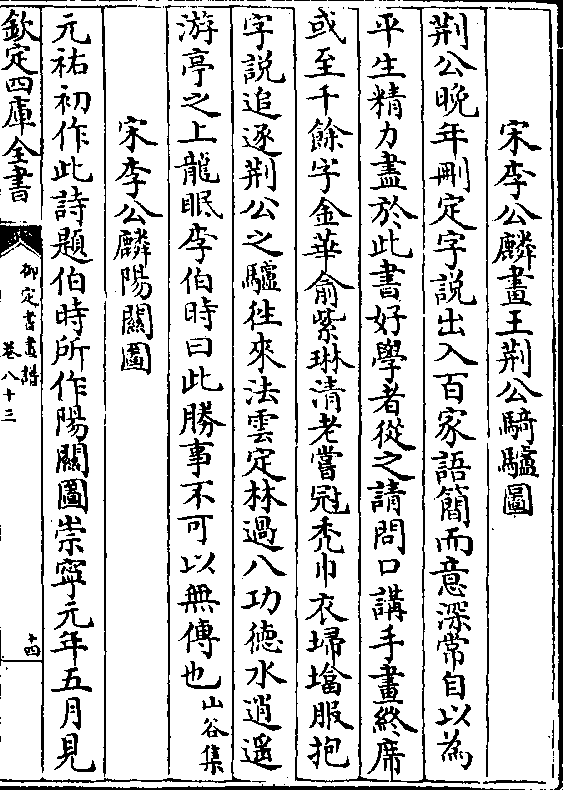 宋李公麟畫王荆公騎驢圖
荆公晚年刪定字説出入百家語簡而意深常自以為
平生精力盡於此書好學者從之請問口講手畫終席
或至千餘字金華俞紫琳清老嘗冠秃巾衣埽㙮服抱
字説追逐荆公之驢往來法雲定林過八功徳水逍遥
游亭之上龍眠李伯時曰此勝事不可以無傳也山谷集
宋李公麟陽關圖
元祐初作此詩題伯時所作陽關圖崇寧元年五月見
欽定四庫全書
御定書畫譜
卷八十三
十四